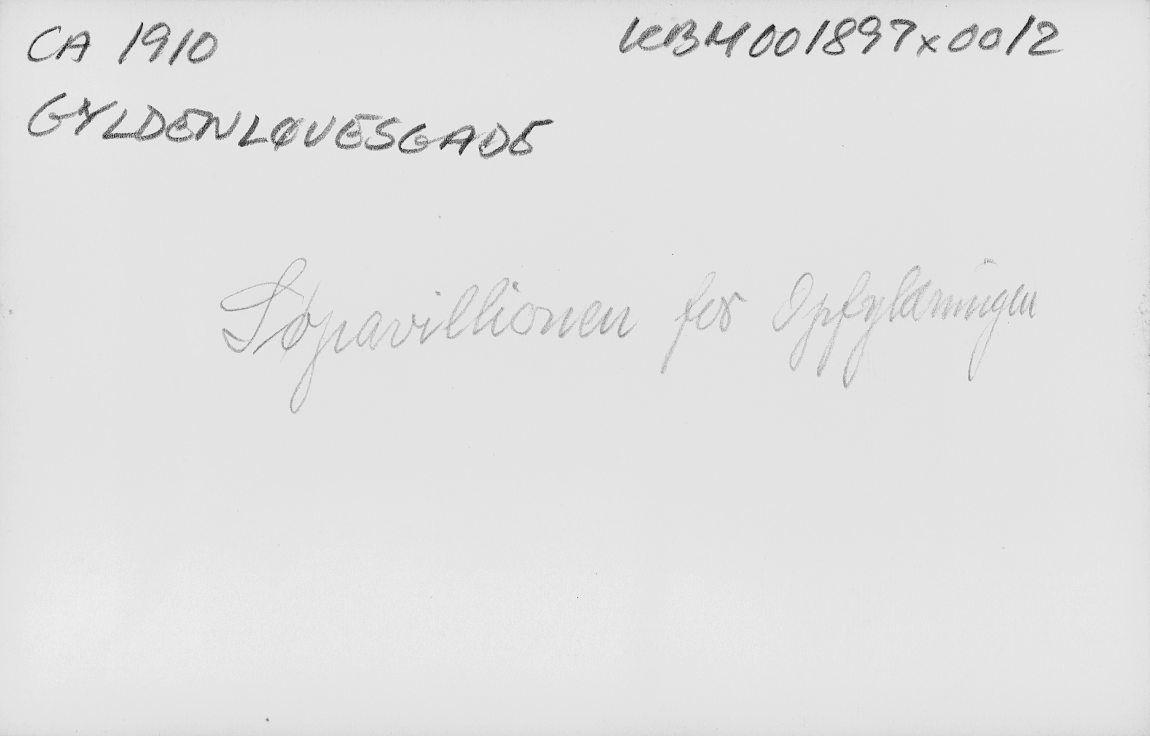 CA 1910 KBM001897x0012
GYLDENLØVESGADE
Søpavillionen før Opfyldningen